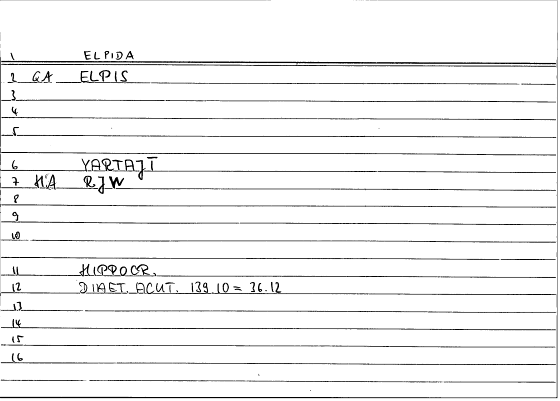 1 ELPIDA
2 GA ELPIS
3
4
5
6 YARTAJT
7 HA RJW
8
9
10
11 HIPPOCR.
12 DIAET. ACUT. 139.10 = 36.12
13
14
15
16